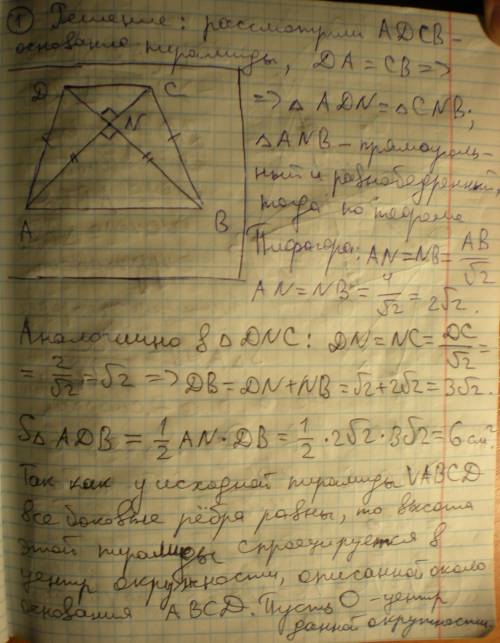 ① Решение: рассмотрим ADCB –
основание пирамиды, DA = CB =>
=> △ ADN = △ CNB;
△ ANB – прямоуголь-
ный и равнобедренный,
тогда по теореме
Пифагора: AN = NB = AB/√2
AN = NB = 4/√2 = 2√2.
D C
N
A B
Аналогично в △ DNC: DN = NC = DC/√2 =
= 2/√2 = √2 => DB = DN + NB = √2 + 2√2 = 3√2.
S△ ADB = 1/2 AN · DB = 1/2 · 2√2 · 3√2 = 6 см².
Так как у исходной пирамиды VABCD
все боковые рёбра равны, то высота
этой пирамиды спроецируется в
центр окружности, описанной около
основания ABCD. Пусть O – центр
данной окружности,